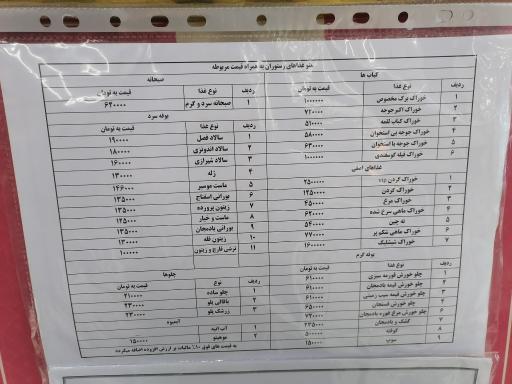 منو غذاهای رستوران به همراه قیمت مربوطه
کباب ها
ردیف نوع غذا قیمت به تومان
۱ خوراک برگ مخصوص ۱۰۰۰۰۰۰
۲ خوراک اکبرجوجه ۷۲۰۰۰۰
۳ خوراک کباب لقمه ۵۱۰۰۰۰
۴ خوراک جوجه بی استخوان ۵۸۰۰۰۰
۵ خوراک جوجه با استخوان ۶۳۰۰۰۰
۶ خوراک فیله گوسفندی ۱۰۰۰۰۰۰
غذاهای اصلی
۱ خوراک گردن vip ۲۵۰۰۰۰۰
۲ خوراک گردن ۱۲۵۰۰۰۰
۳ خوراک مرغ ۴۵۰۰۰۰
۴ خوراک ماهی سرخ شده ۶۲۰۰۰۰
۵ ته چین ۵۴۰۰۰۰
۶ خوراک ماهی شکم پر ۷۷۰۰۰۰
۷ خوراک شیشلیک ۱۶۰۰۰۰۰
بوفه گرم
ردیف نوع غذا قیمت به تومان
۱ چلو خورش قورمه سبزی ۶۱۰۰۰۰
۲ چلو خورش قیمه بادمجان ۶۱۰۰۰۰
۳ چلو خورش قیمه سیب زمینی ۶۱۰۰۰۰
۴ چلو خورش فسنجان ۶۵۰۰۰۰
چلو خورش مرغ غوره بادمجان ۷۲۰۰۰۰
۷ کشک و بادمجان ۲۳۵۰۰۰
۸ کوفته ۵۰۰۰۰۰
۹ سوپ ۱۵۰۰۰۰
صبحانه
ردیف نوع غذا قیمت به تومان
۱ صبحانه سرد و گرم ۶۲۰۰۰۰
بوفه سرد
ردیف نوع غذا قیمت به تومان
۱ سالاد فصل ۱۹۰۰۰۰
۲ سالاد اندونزی ۱۸۰۰۰۰
۳ سالاد شیرازی ۱۶۰۰۰۰
۴ ژله ۱۳۰۰۰۰
۵ ماست موسیر ۱۴۶۰۰۰
۶ بورانی اسفناج ۱۳۵۰۰۰
۷ زیتون پرورده ۱۳۵۰۰۰
۸ ماست و خیار ۱۲۵۰۰۰
۹ بورانی بادمجان ۱۳۵۰۰۰
۱۰ زیتون فله ۱۳۰۰۰۰
۱۱ ترشی قارچ و زیتون ۱۰۰۰۰۰
چلوها
ردیف نوع قیمت به تومان
۱ چلو ساده ۲۱۰۰۰۰
۲ باقالی پلو ۲۳۰۰۰۰
۳ زرشک پلو ۲۳۰۰۰۰
آبمیوه
۱ آب انبه
۲ موهیتو ۱۵۰۰۰۰
به قیمت های فوق ۱۰٪ مالیات بر ارزش افزوده اضافه میگردد